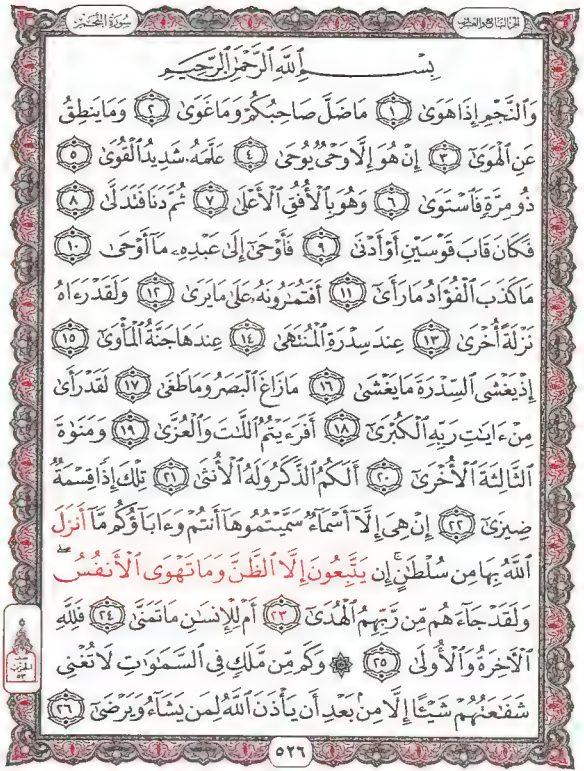 سُورَةُ النَّجْمِ
الجزء السابع والعشرون
بِسْمِ ٱللَّهِ ٱلرَّحْمَٰنِ ٱلرَّحِيمِ
وَٱلنَّجْمِ إِذَا هَوَىٰ ١ مَا ضَلَّ صَاحِبُكُمْ وَمَا غَوَىٰ ٢ وَمَا يَنطِقُ
عَنِ ٱلْهَوَىٰٓ ٣ إِنْ هُوَ إِلَّا وَحْىٌ يُوحَىٰ ٤ عَلَّمَهُۥ شَدِيدُ ٱلْقُوَىٰ ٥
ذُو مِرَّةٍ فَٱسْتَوَىٰ ٦ وَهُوَ بِٱلْأُفُقِ ٱلْأَعْلَىٰ ٧ ثُمَّ دَنَا فَتَدَلَّىٰ ٨
فَكَانَ قَابَ قَوْسَيْنِ أَوْ أَدْنَىٰ ٩ فَأَوْحَىٰٓ إِلَىٰ عَبْدِهِۦ مَآ أَوْحَىٰ ١٠
مَا كَذَبَ ٱلْفُؤَادُ مَا رَأَىٰٓ ١١ أَفَتُمَٰرُونَهُۥ عَلَىٰ مَا يَرَىٰ ١٢ وَلَقَدْ رَءَاهُ
نَزْلَةً أُخْرَىٰ ١٣ عِندَ سِدْرَةِ ٱلْمُنتَهَىٰ ١٤ عِندَهَا جَنَّةُ ٱلْمَأْوَىٰٓ ١٥
إِذْ يَغْشَى ٱلسِّدْرَةَ مَا يَغْشَىٰ ١٦ مَا زَاغَ ٱلْبَصَرُ وَمَا طَغَىٰ ١٧ لَقَدْ رَأَىٰ
مِنْ ءَايَٰتِ رَبِّهِ ٱلْكُبْرَىٰٓ ١٨ أَفَرَءَيْتُمُ ٱللَّٰتَ وَٱلْعُزَّىٰ ١٩ وَمَنَوٰةَ
ٱلثَّالِثَةَ ٱلْأُخْرَىٰٓ ٢٠ أَلَكُمُ ٱلذَّكَرُ وَلَهُ ٱلْأُنثَىٰ ٢١ تِلْكَ إِذًا قِسْمَةٌ
ضِيزَىٰٓ ٢٢ إِنْ هِىَ إِلَّآ أَسْمَآءٌ سَمَّيْتُمُوهَآ أَنتُمْ وَءَابَآؤُكُم مَّآ أَنزَلَ
ٱللَّهُ بِهَا مِن سُلْطَٰنٍ ۚ إِن يَتَّبِعُونَ إِلَّا ٱلظَّنَّ وَمَا تَهْوَى ٱلْأَنفُسُ ۖ
وَلَقَدْ جَآءَهُم مِّن رَّبِّهِمُ ٱلْهُدَىٰٓ ٢٣ أَمْ لِلْإِنسَٰنِ مَا تَمَنَّىٰ ٢٤ فَلِلَّهِ
ٱلْءَاخِرَةُ وَٱلْأُولَىٰ ٢٥ ۞ وَكَم مِّن مَّلَكٍ فِى ٱلسَّمَٰوَٰتِ لَا تُغْنِى
شَفَٰعَتُهُمْ شَيْـًٔا إِلَّا مِنۢ بَعْدِ أَن يَأْذَنَ ٱللَّهُ لِمَن يَشَآءُ وَيَرْضَىٰٓ ٢٦
الحزب
٥٣
٥٢٦